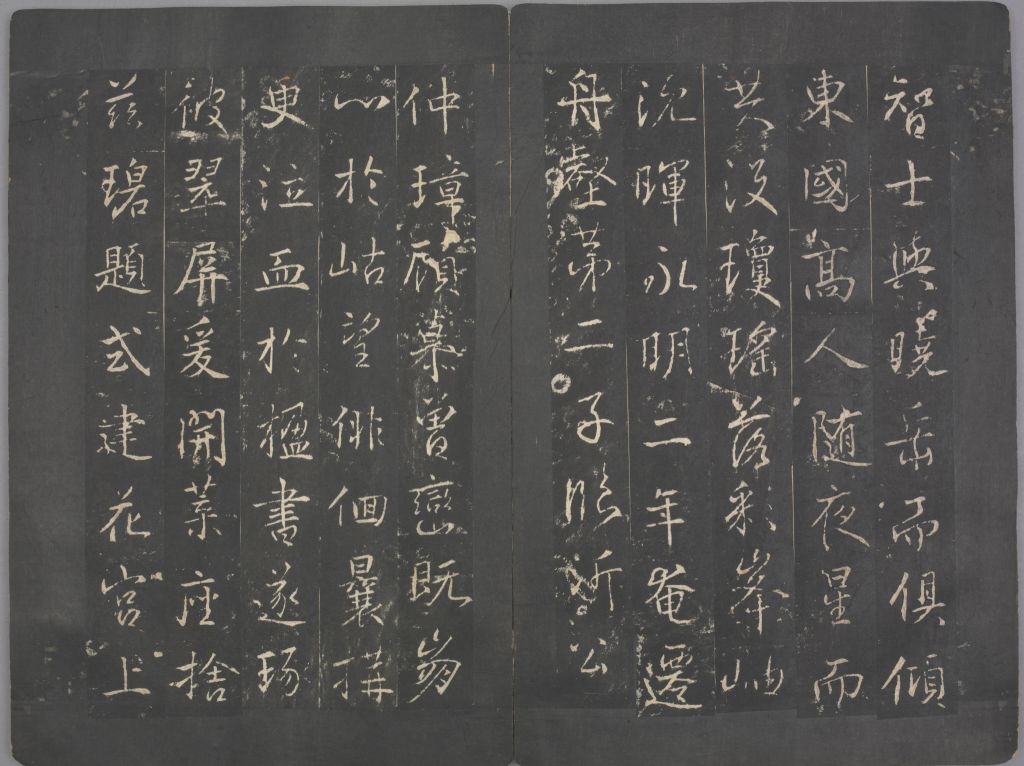 智士與曉岳而俱傾
東國高人随夜星而
共没瓊瑶落彩峯岫
沈暉永明二年奄遷
舟壑第二子臨沂公
仲璋顧慕曾巒既崩
心於岵望俳佪曩搆
更泣血於楹書遂琢
彼翠屏爰開葉座捨
茲碧題式建花宮上